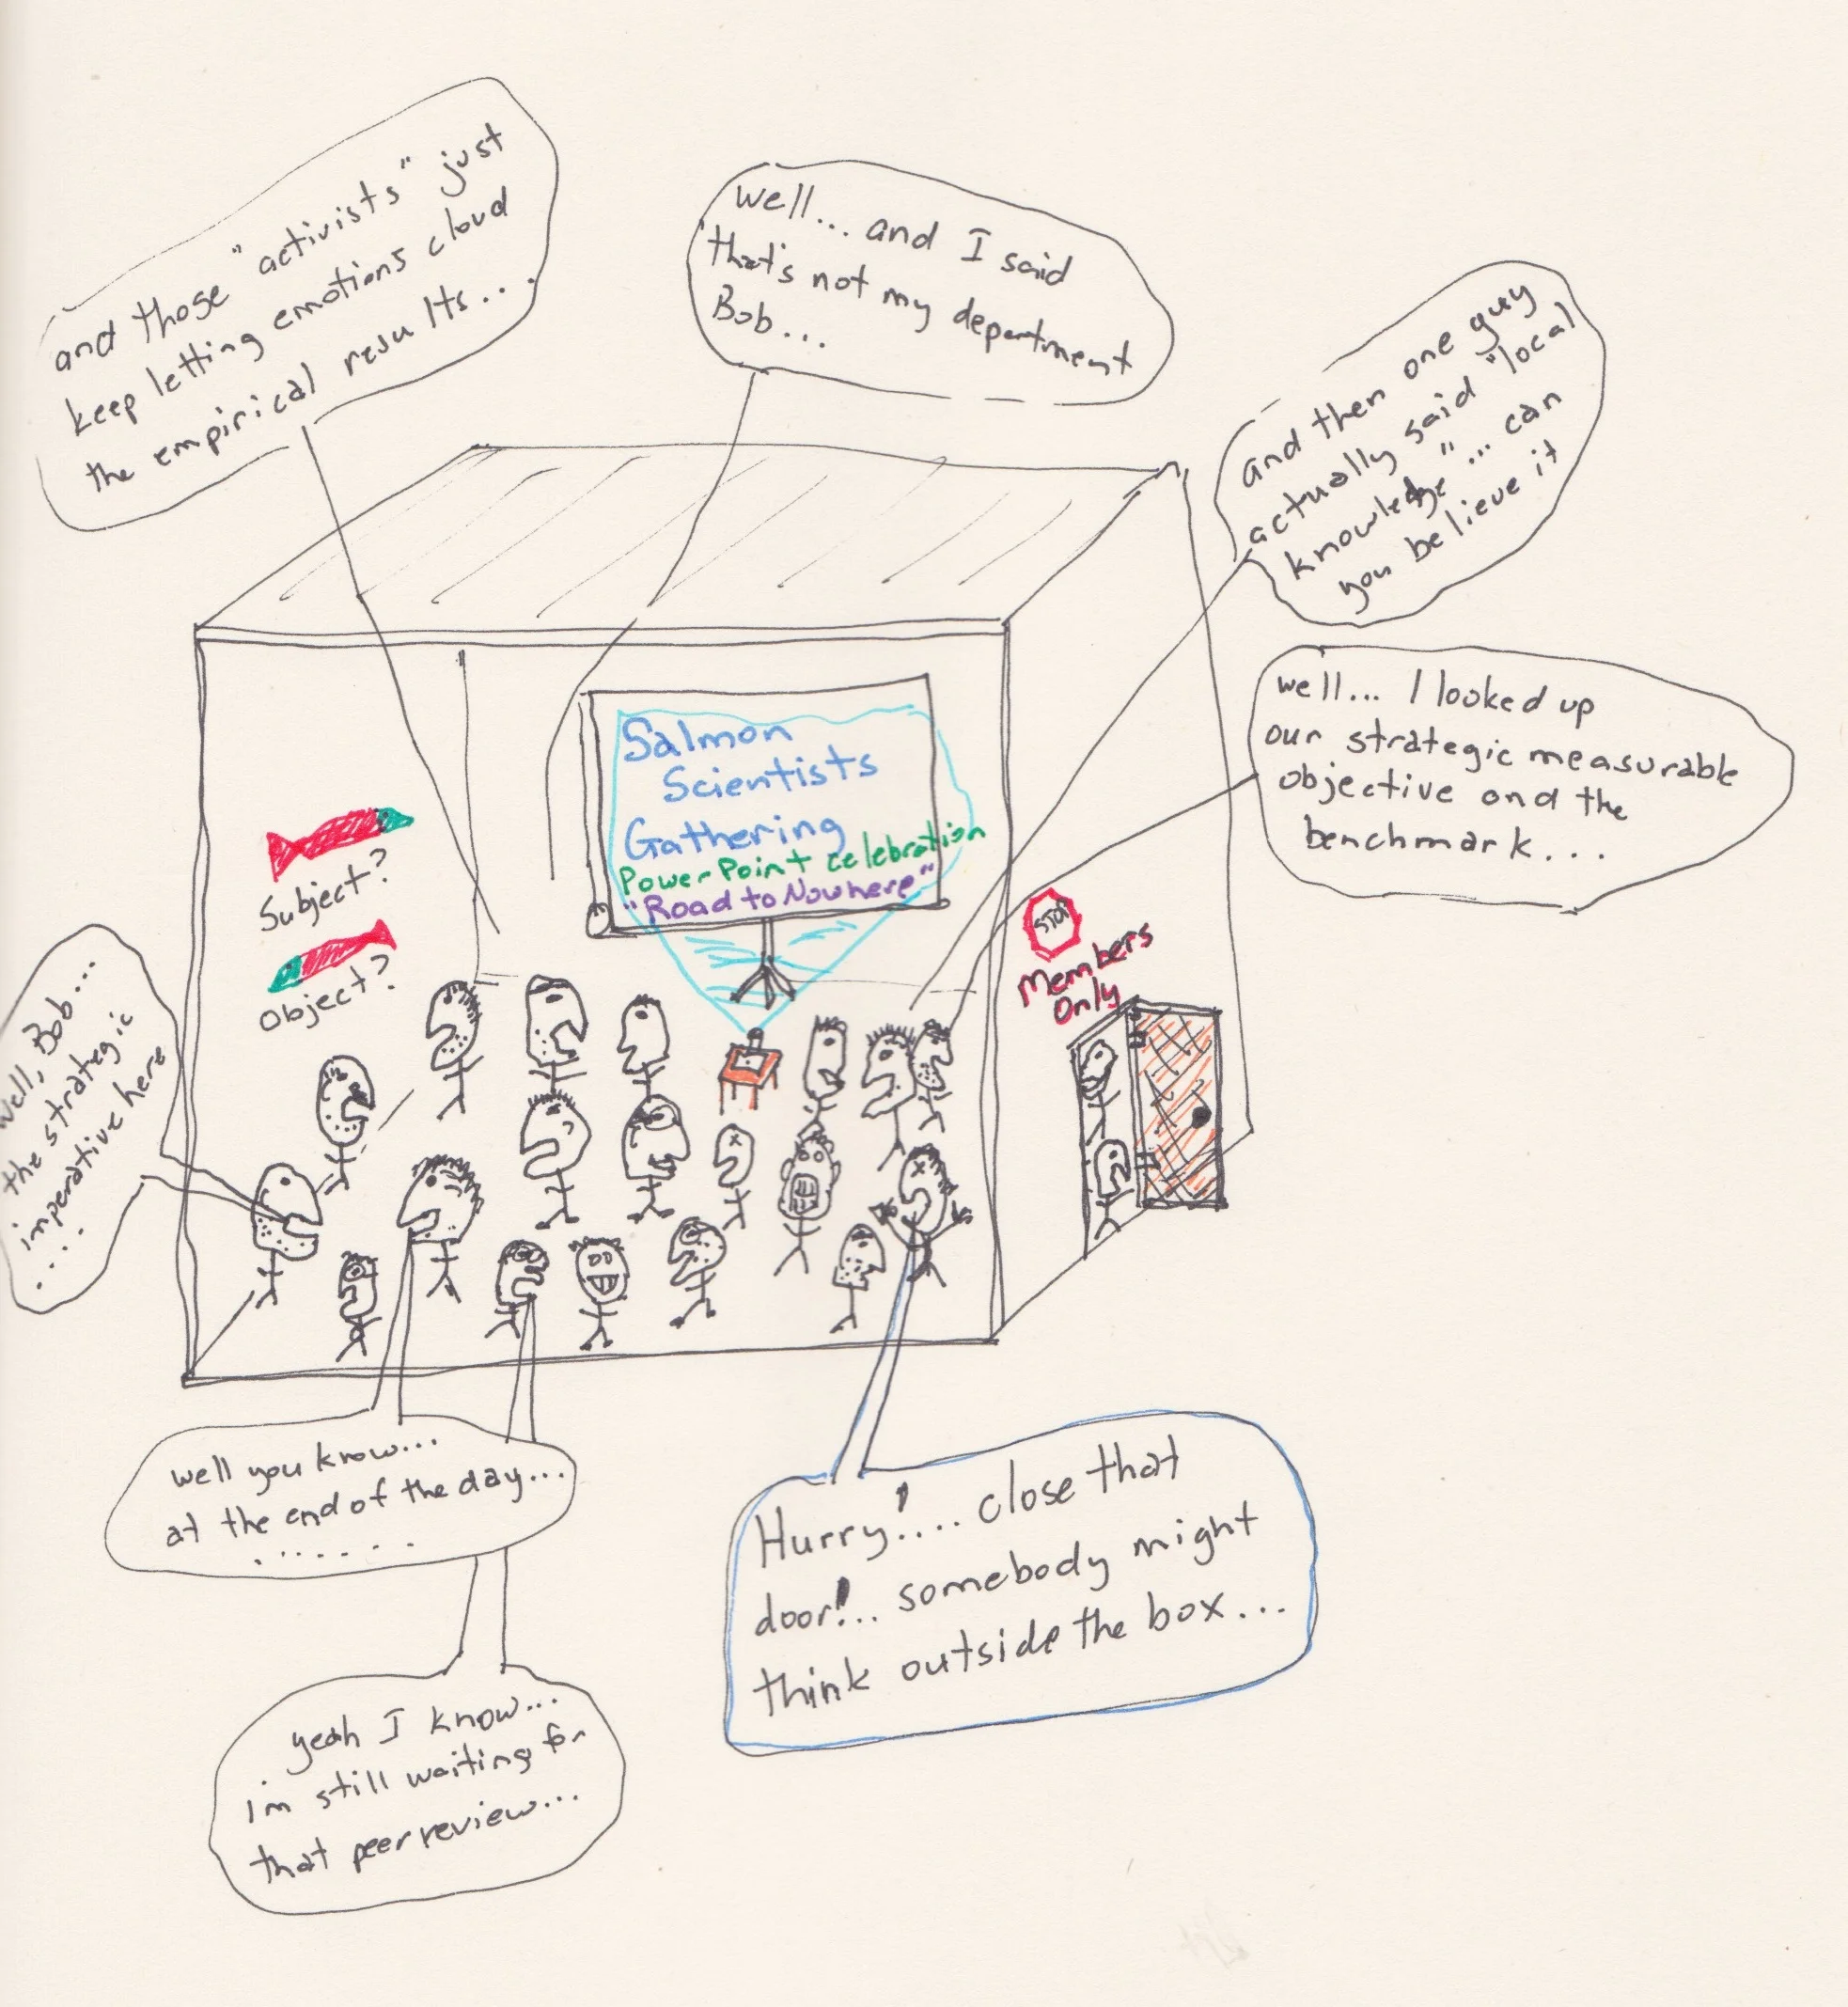 and those "activists" just
keep letting emotions cloud
the empirical results...
well... and I said
'that's not my department
Bob...
and then one guy
actually said "local
knowledge"... can
you believe it
well... I looked up
our strategic measurable
objective and the
benchmark...
Salmon
Scientists
Gathering
PowerPoint celebration
"Road to Nowhere"
Subject?
Object?
STOP
Members
Only
well, Bob...
the strategic
imperative here
....
well you know...
at the end of the day...
.......
yeah I know...
im still waiting for
that peer review...
Hurry!.... close that
door!... somebody might
think outside the box...